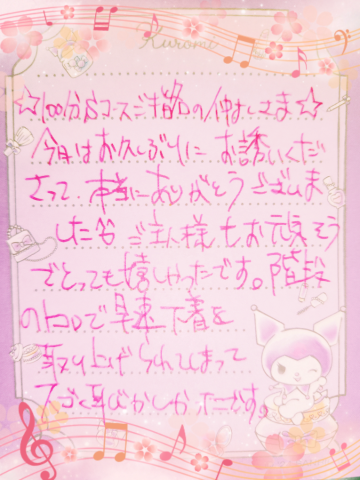 Kuromi
☆100分Sコースご指名の仲よしさま☆
今日はお久しぶりに お誘いくだ
さって 本当にありがとう ございま
した 。ご主人様もお元気そう
でとっても嬉しかったです。階段
のトコロで早速下着を
取り上げられてしまって
スゴく恥ずかしかったです。